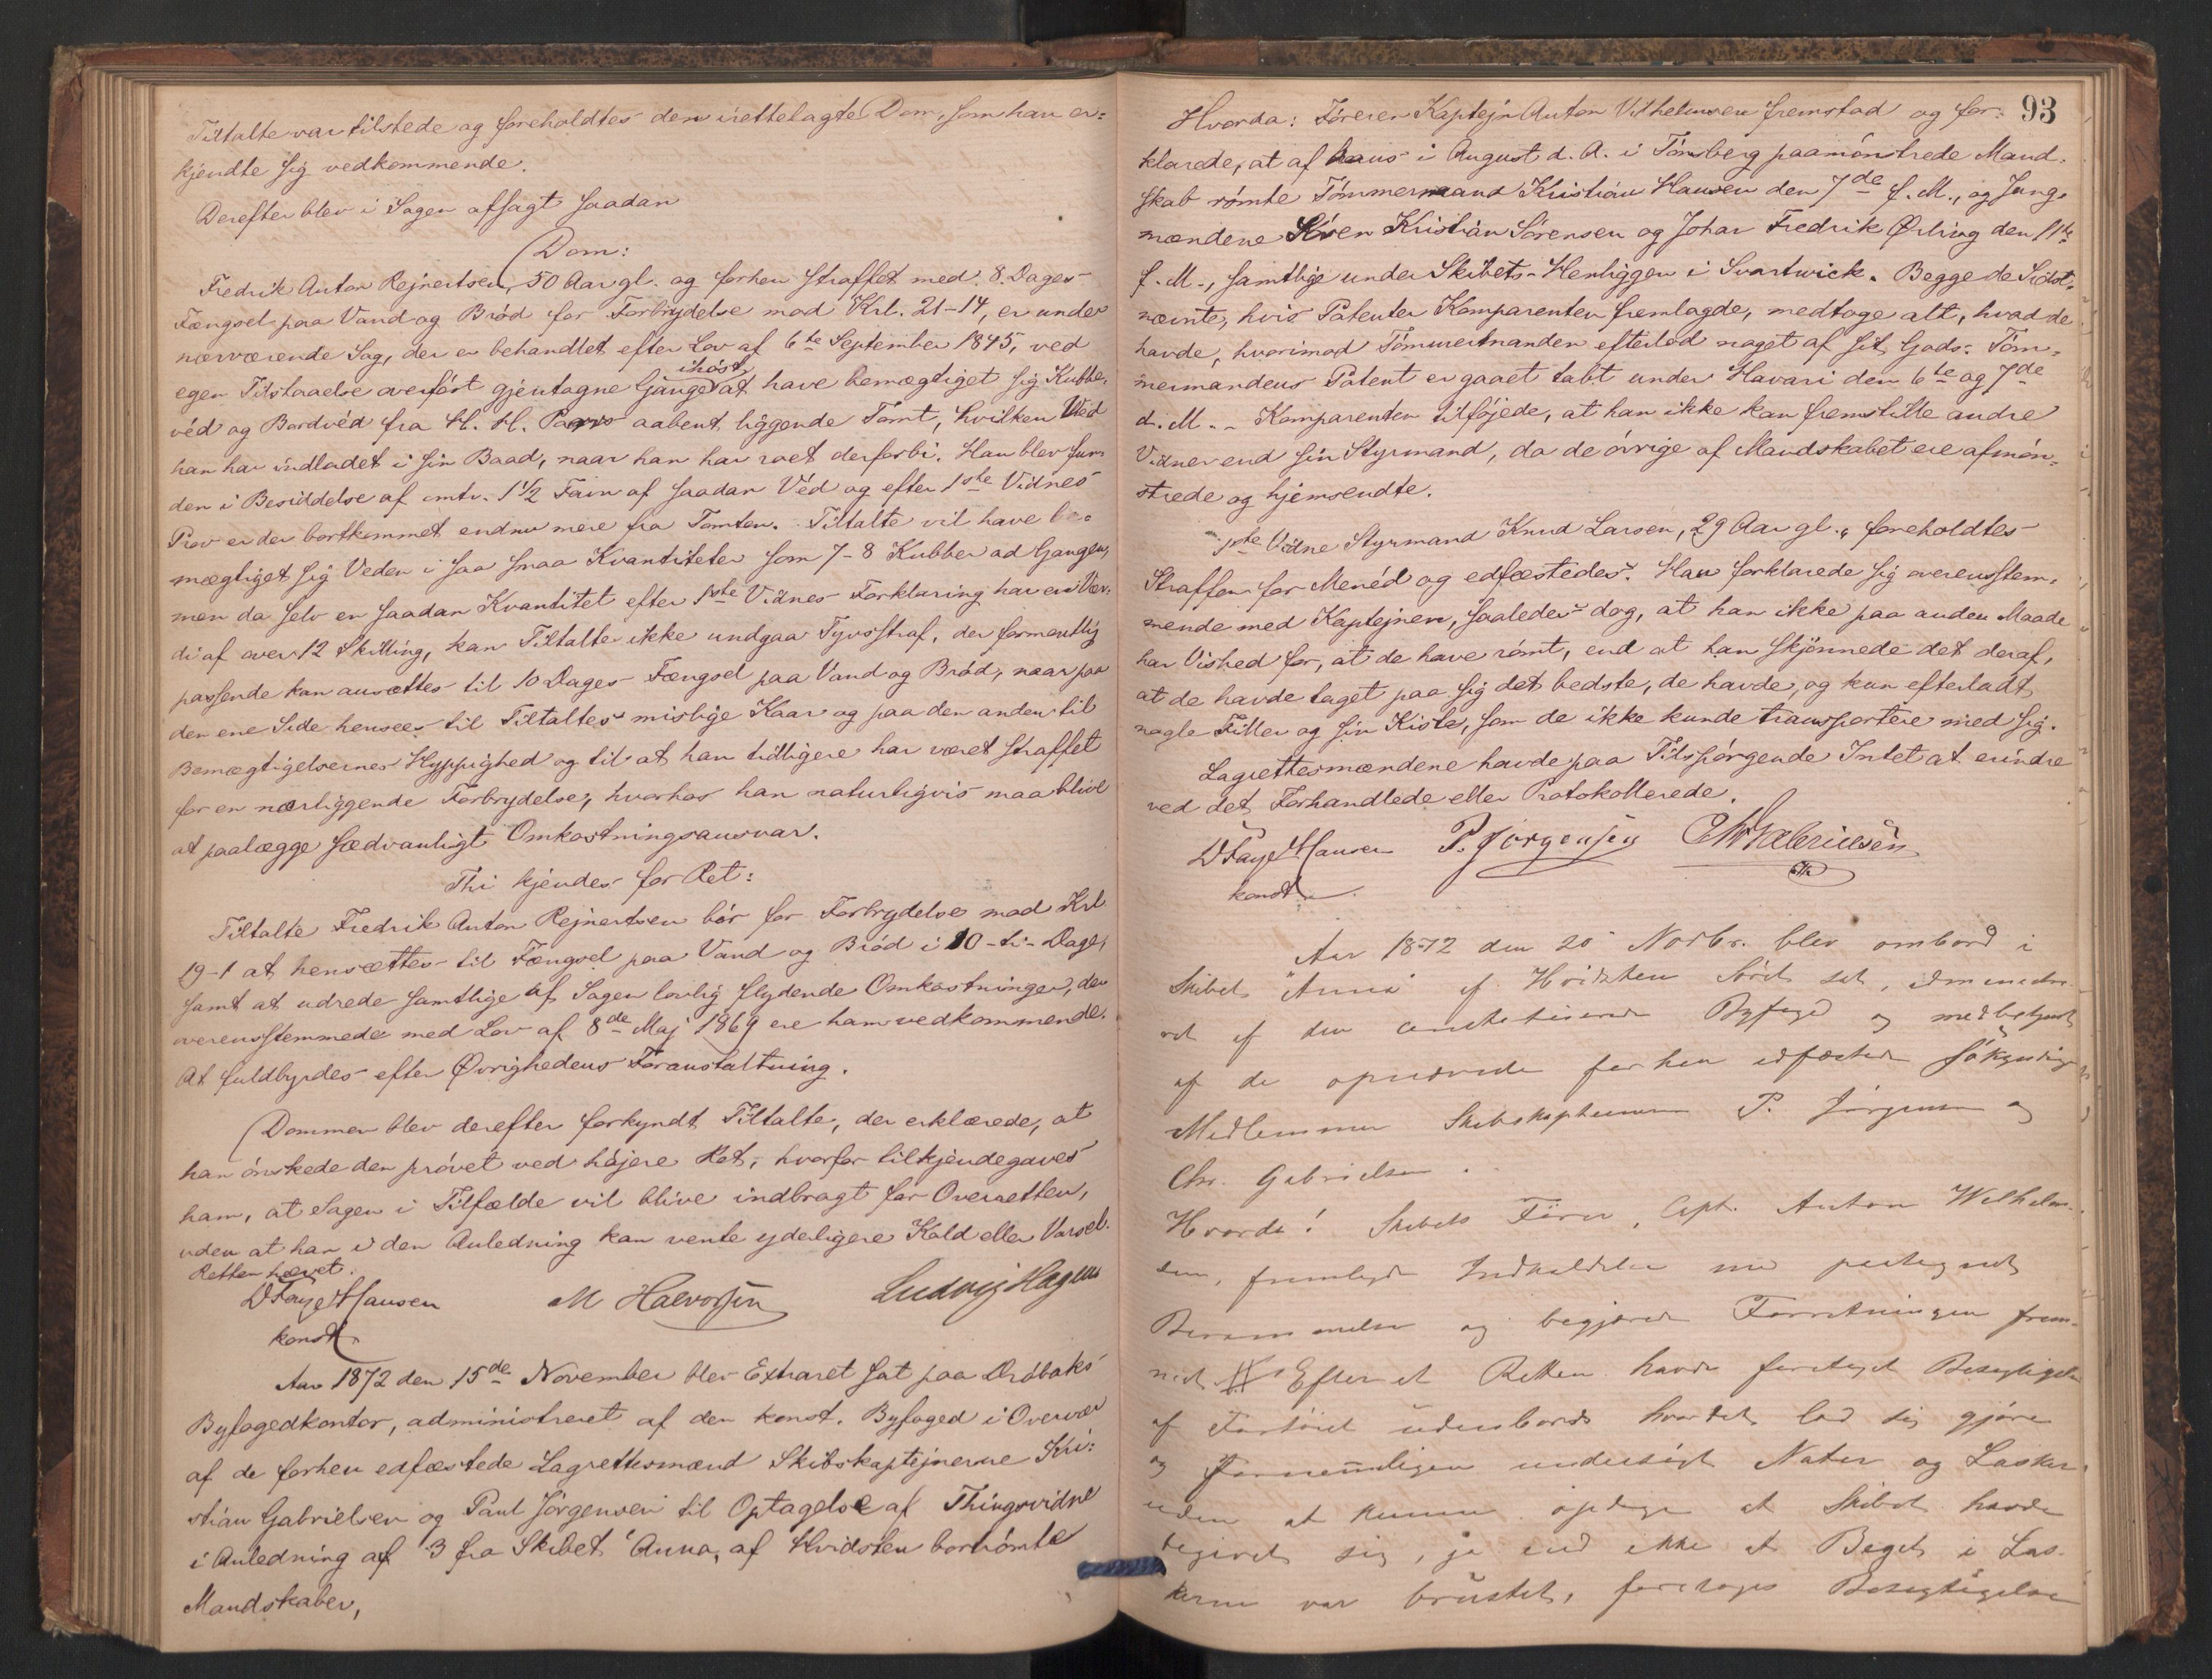 Tiltalte var tilstede og foreholdtes den irettelagte Dom, som han er-
kjendte sig vedkommende.
Derefter blev i Sagen afsagt saadan
Dom:
Fredrik Anton Rejnertsen, 50 Aar gl. og forhen straffet med 8 Dages
Fængsel paa Vand og Brød for Forbrydelse mod Krl. 21-14, er under
nærværende Sag, der er behandlet efter Lov af 6te September 1845, ved
egen Tilstaaelse overført gjentagne Gange ihøst at have bemægtiget sig Kubbe-
véd og Bordvéd fra H. H. Parrs aabent liggende Tomt, hvilken Véd
han har indladet i sin Baad, naar han har roet derforbi. Han blev fun-
den i Besiddelse af omtr. 1 1/2 Favn af saadan Véd og efter 1ste Vidnes
Prov er der bortkommet endnu mere fra Tomten. Tiltalte vil have be-
mægtiget sig Veden i saa smaa Kvantiteter som 7-8 Kubber ad Gangen,
men da selv en saadan Kvantitet efter 1ste Vidnes Forklaring har en Vær-
di af over 12 Skilling, kan Tiltalte ikke undgaa Tyvsstraf, der formentlig
passende kan ansættes til 10 Dages Fængsel paa Vand og Brød, naar paa
den ene Side hensees til Tiltaltes mislige Kaar og paa den anden til
Bemægtigelsernes Hyppighed og til at han tidligere har været straffet
for en nærliggende Forbrydelse, hvorhos han naturligvis maa blive
at paalægge sædvanligt Omkostningsansvar.
Thi kjendes for Ret:
Tiltalte Fredrik Anton Rejnertsen bør for Forbrydelse mod Krl.
19-1 at hensættes til Fængsel paa Vand og Brød i 10-ti-Dage,
samt at udrede samtlige af Sagen lovlig flydende Omkostninger, der
overensstemmende med Lov af 8de Maj 1869 ere ham vedkommende.
At fuldbyrdes efter Øvrighedens Foranstaltning.
Dommen blev derefter forkyndt Tiltalte, der erklærede, at
han ønskede den prøvet ved højere Ret, hvorfor tilkjendegaves
ham, at Sagen i Tilfælde vil blive indbragt for Overretten,
uden at han i den Anledning kan vente yderligere Kald eller Varsel.
Retten hævet.
D Faye Hansen M Halvorsen Ludvig Hagen
konst.
Aar 1872 den 15de November blev Extraret sat paa Drøbaks
Byfogedkontor, administreret af den konst. Byfoged i Overvær
af de forhen edfæstede Lagrettesmænd Skibskaptejnerne Kri-
stian Gabrielsen og Paul Jørgensen til Optagelse af Thingsvidne
i Anledning af 3 fra Skibet "Anna" af Hvidsten bortrømte
Mandskaber,
93
Hvorda: Føreren Kaptejn Anton Vilhelmsen fremstod og for-
klarede, at af hans i August d. A. i Tønsberg paamønstrede Mand-
skab rømte Tømmermand Kristian Hansen den 7de f. M., og Jung-
mændene Sören Kristian Sörensen og Johan Fredrik Ørling den 11te
f. M., samtlige under Skibets Henliggen i Svartwick. Begge de Sidst-
nævnte, hvis Patenter Komparenten fremlagde, medtoge alt, hvad de
havde, hvorimod Tømmermanden efterlod noget af sit Gods. Töm-
mermandens Patent er gaaet tabt under Havari den 6te og 7de
d. M. - Komparenten tilføjede, at han ikke kan fremstille andre
Vidner end sin Styrmand, da de øvrige af Mandskabet ere afmön-
strede og hjemsendte.
1ste Vidne Styrmand Knud Larsen, 29 Aar gl., foreholdtes
Straffen for Menéd og edfæstedes. Han forklarede sig overensstem-
mende med Kaptejnen, saaledes dog, at han ikke paa anden Maade
har Vished for, at de have rømt, end at han skjønnede det deraf,
at de havde taget paa sig det bedste, de havde, og kun efterladt
nogle Filler og sin Kiste, som de ikke kunde transportere med sig.
Lagrettesmændene havde paa Tilspørgende Intet at erindre
ved det Forhandlede eller Protokollerede.
D Faye Hansen P. Jörgensen Chr Gabrielsen
konst.
Aar 1872 den 20 Novbr. blev ombord i
Skibet "Anna" af Hvidsten Søret sat, administre-
ret af den constituerede Byfoged og medbetjent
af de opnævnte forhen edfæstede søkyndige
Medlemmer Skibskapteinerne P. Jörgensen og
Chr. Gabrielsen.
Hvorda! Skibets Förer, Capt. Anton Wilhelm-
sen, fremlagde Indkaldelse med paategnet
Berammelse og begjærede Forretningen frem-
met. # Efter at Retten havde foretaget Besigtigelse
af Fartöiet udenbords hvordet lod sig gjöre
og fornemmeligen undersögt Nater og Lasker
uden at kunne opdage at Skibet havde
begivet sig, ja end ikke at Beget i Las-
kerne var brustet, foretoges Besigtigelse